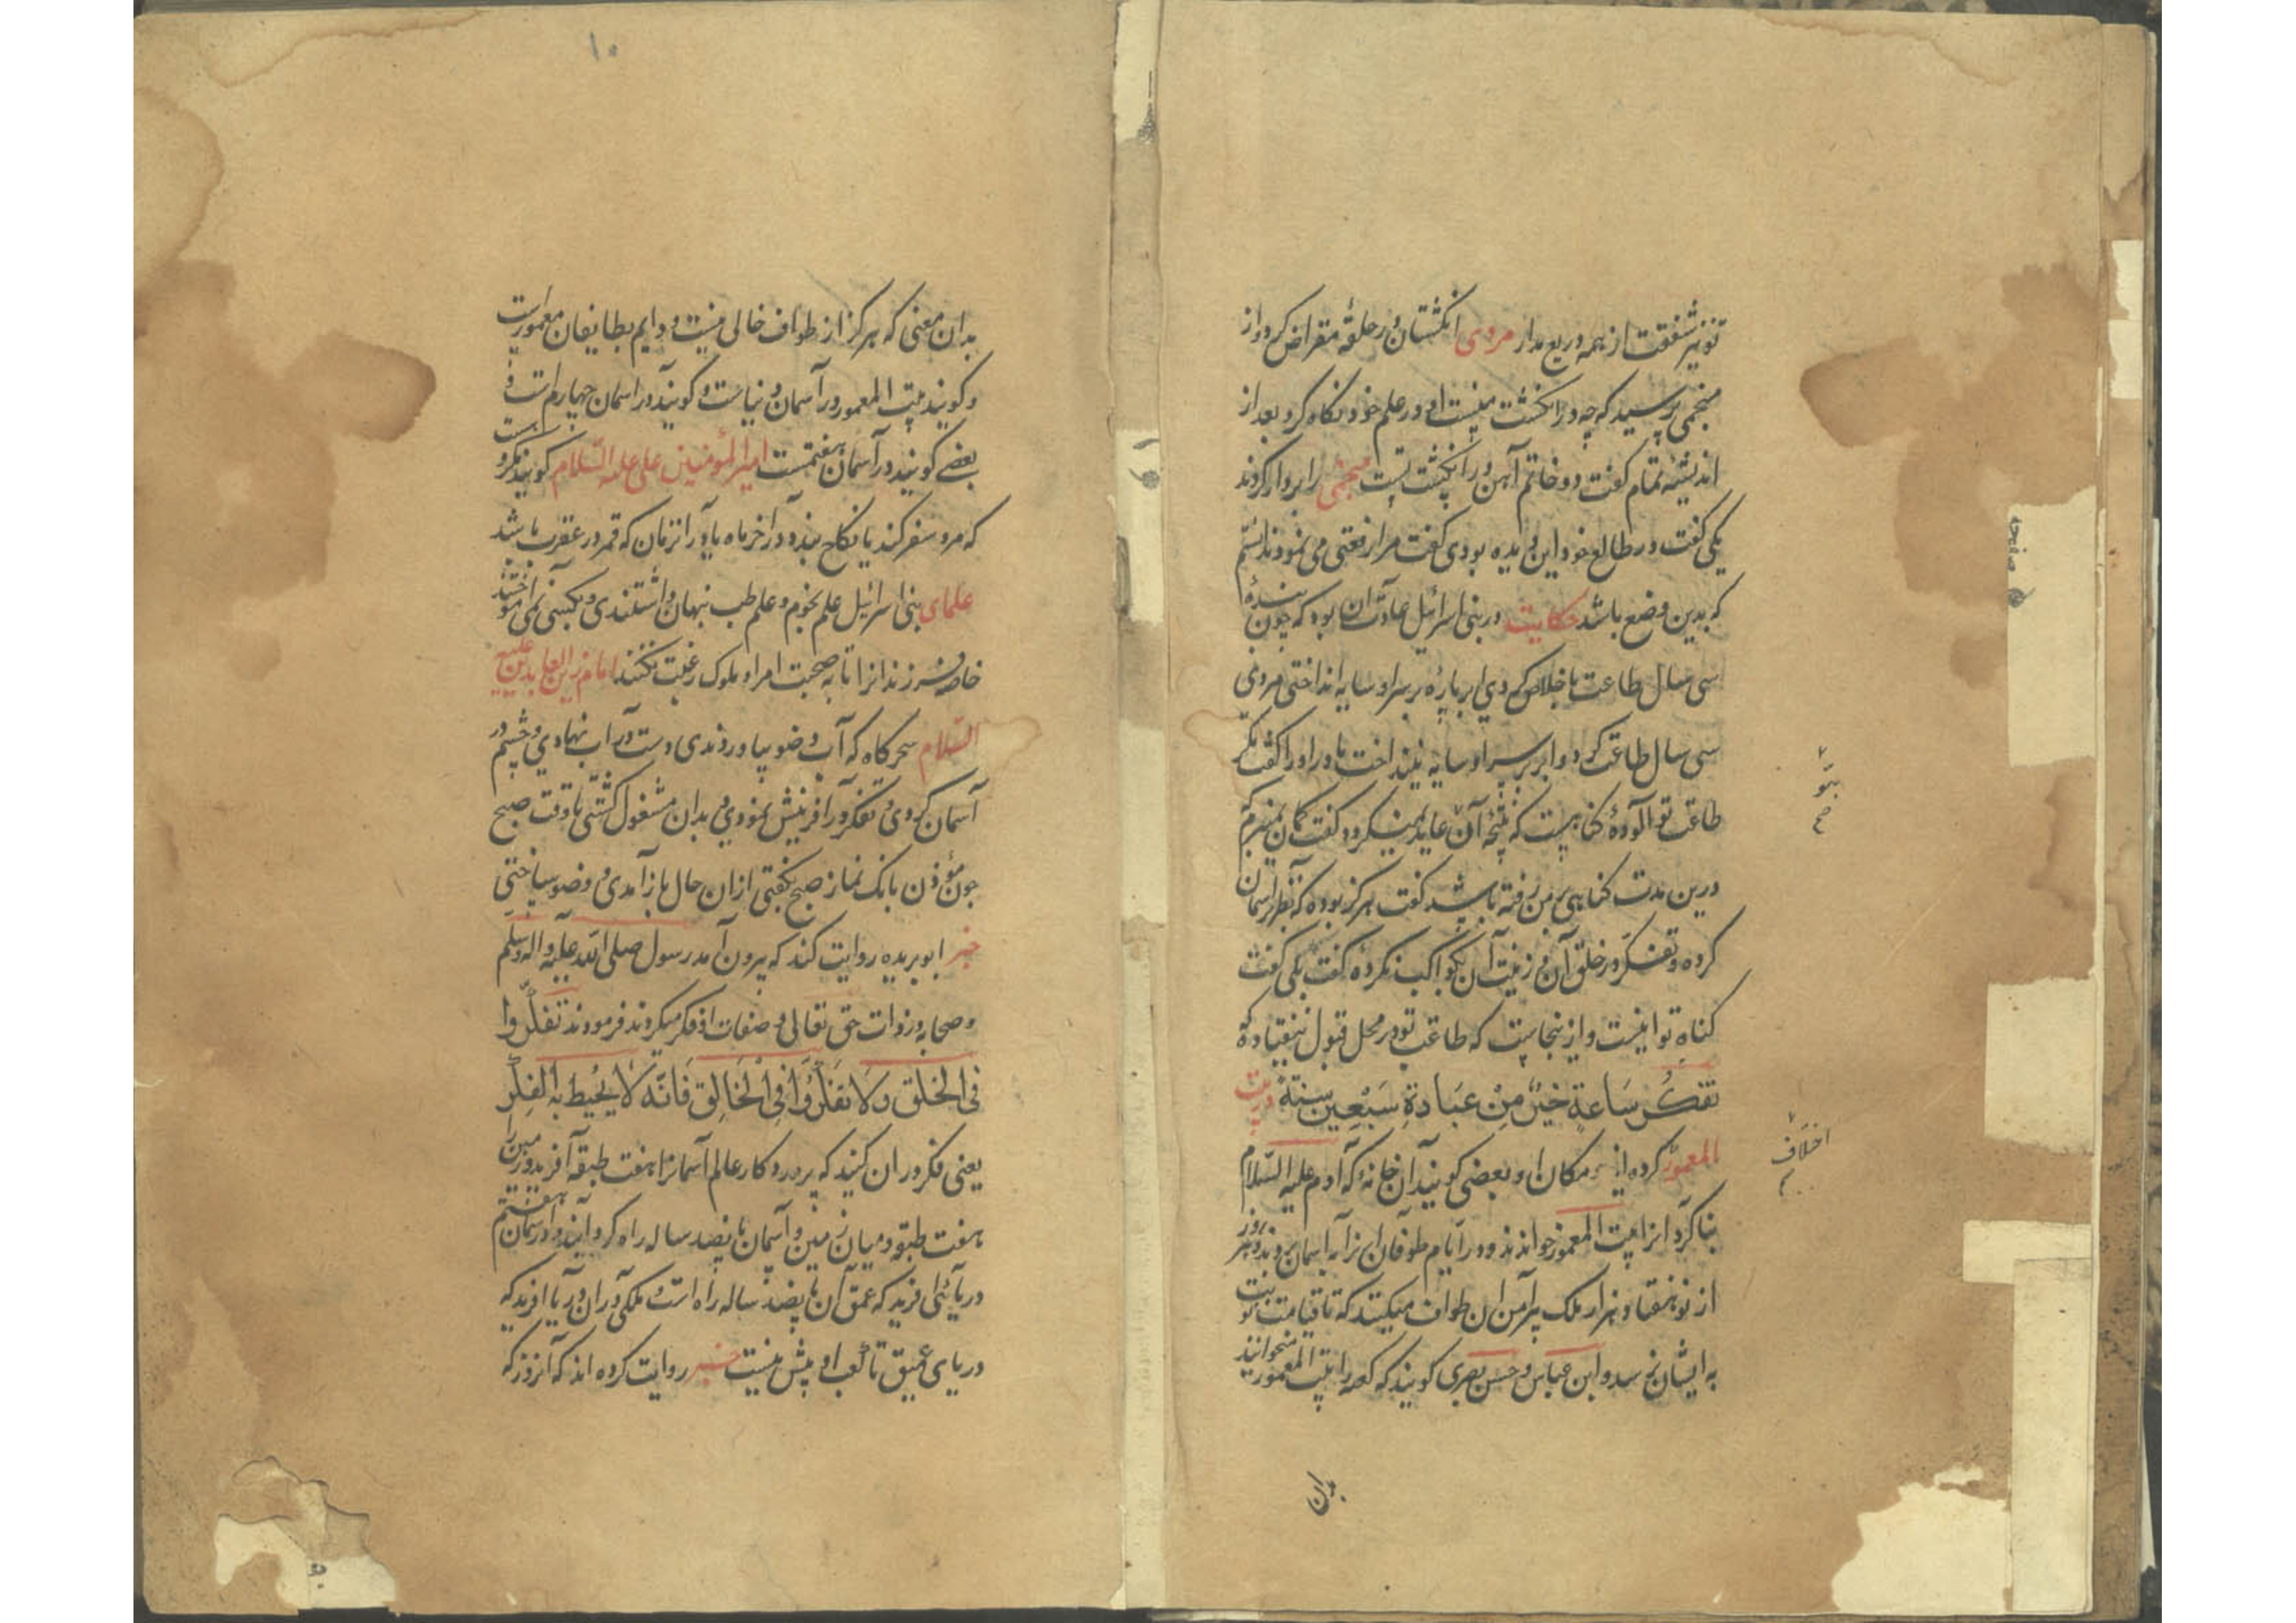 تو نیز شفقت از همه دریغ مدار مردی انگشتان در حلقهٔ مقراض کرد و از
منجمی پرسید که چه در انگشت منست او در علم خود نگاه کرد بعد از
اندیشهٔ تمام گفت دو خاتم آهن در انگشت تست منجمی را بردار کردند
یکی گفت در طالع خود این دیده بودی گفت مرا رفعتی می نمود ندانستم
که بدین وضع باشد حکایت در بنی اسرائیل عادت آن بود که چون بندهٔ
سی سال طاعت باخلاص کردی ابر پارهٔ بر سر او سایه انداختی مردی
سی سال طاعت کرد و ابر بر سر او سایه نینداخت مادر او را گفت مگر
طاعت تو آلودهٔ گناهیست که نتیجهٔ آن عاید نمیگردد گفت گمان نمیبرم که
درین مدت گناهی بر من رفته باشد گفت هرگز بوده که نظر بر آسمان
کرده و تفکر در خلق آن و زینت آن بکواکب نکردهٔ گفت بلی گفت
گناه تو اینست و از ینجاست که طاعت تو در محل قبول نیفتاد که
تفکر ساعة خیر من عبادة سبعین سنة و بیت
المعمور کرده اند مکان او بعضی گویند آن خانهٔ که آدم علیه السلام
بنا کرد آنرا بیت المعمور خواندند و در ایام طوفان آنرا به آسمان بردند و هر روز
از نو هفتاد هزار ملک پیرامن آن طواف میکنند که تا قیامت نوبت
به ایشان نرسد و ابن عباس و حسن بصری گویند که کعبه را بیت المعمور میخوانند
بدان
بدان معنی که هرگز از طواف خالی نیست و دایم بطایفان معمورست
و گویند بیت المعمور در آسمان دنیاست و گویند در آسمان چهارم است و
بعضی گویند در آسمان هفتمست امیر المؤمنین علی علیه السلام گویند مکروهست
که مرد سفر کند یا نکاح بندد در آخر ماه یا در آنزمان که قمر در عقرب باشد
علمای بنی اسرائیل علم نجوم و علم طب نهان داشتندی و بکسی نمی آموختند
خاصه فرزندانرا تا به صحبت امرا و ملوک رغبت نکنند امام زین العابدین علیه
السلام سحرگاه که آب وضو بیاوردندی دست در آب نهادی و چشم در
آسمان کردی و تفکر در آفرینش نمودی و بدان مشغول گشتی تا وقت صبح
چون مؤذن بانگ نماز صبح بگفتی از ان حال باز آمدی و وضو ساختی
خبر ابو بریده روایت کند که بیرون آمد رسول صلی الله علیه و اله و سلم
و صحابه در ذات حق تعالی و صفات او فکر میکردند فرمودند تفکروا
فی الخلق ولا تفکروا فی الخالق فانه لا یحیط به الفکر
یعنی فکر در ان کنید که پروردگار عالم آسمانرا هفت طبقه آفرید و زمین را
هفت طبقه و میان زمین و آسمان پانصد ساله راه کردانید و در آسمان هفتم
دریائی آفرید که عمق آن پانصد ساله راه است و ملکی در ان دریا آفرید که
دریای عمیق تا کعب او بیش نیست خبر روایت کرده اند که آنروز که